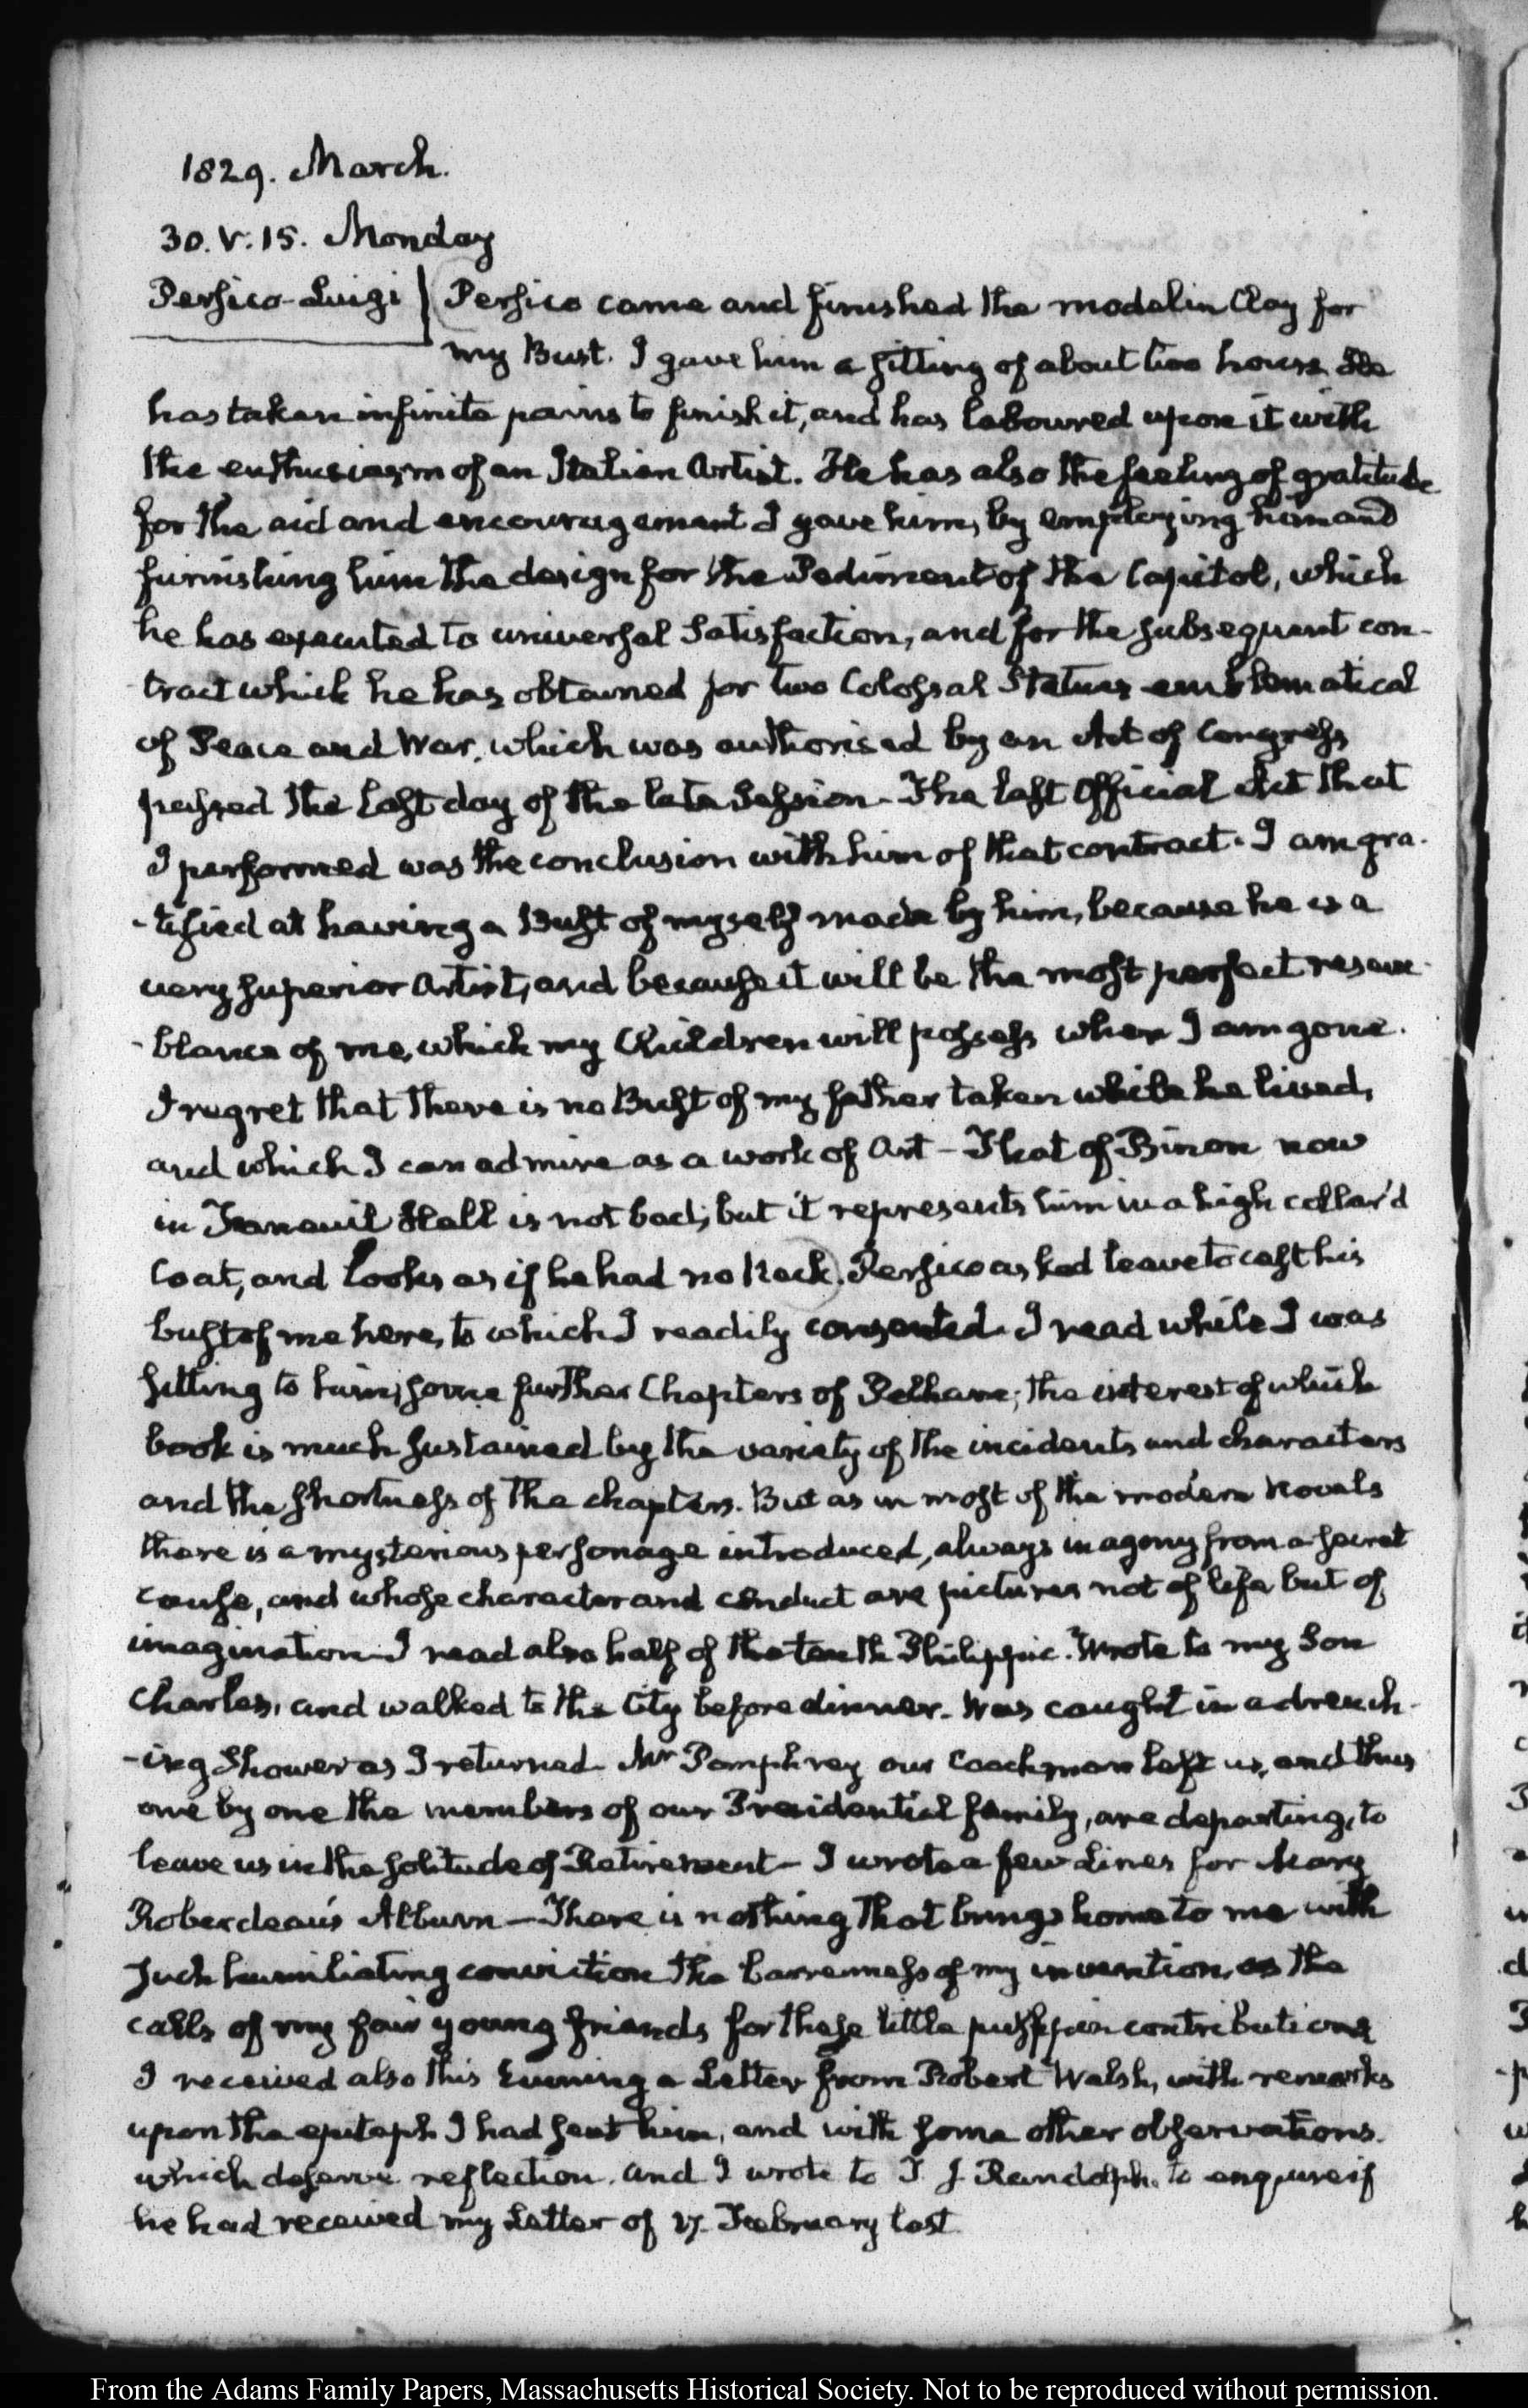 1829. March.
30. V:15. Monday
Persico-Luigi
Persico came and finished the model in Clay for
my Bust. I gave him a sitting of about two hours. He
has taken infinite pains to finish it, and has laboured upon it with
the enthusiasm of an Italian Artist. He has also the feeling of gratitude
for the aid and encouragement I gave him, by employing him and
furnishing him the design for the Pediment of the Capitol, which
he has executed to universal Satisfaction, and for the subsequent con-
tract which he has obtained for two Colossal Statues emblematical
of Peace and War, which was authorised by an Act of Congress
passed the last day of the late Session - The last Official Act that
I performed was the conclusion with him of that contract. I am gra-
-tified at having a Bust of myself made by him, because he is a
very superior Artist, and because it will be the most perfect resem-
-blance of me, which my Children will possess when I am gone.
I regret that there is no Bust of my father taken while he lived,
and which I can admire as a work of Art - That of Binon now
in Faneuil Hall is not bad; but it represents him in a high collar'd
Coat, and looks as if he had no Neck. Persico asked leave to cast his
bust of me here, to which I readily consented. I read while I was
sitting to him, some further Chapters of Pelham; the interest of which
book is much sustained by the variety of the incidents and characters
and the shortness of the chapters. But as in most of the modern Novels
there is a mysterious personage introduced, always in agony from a secret
cause, and whose character and conduct are pictures not of life but of
imagination - I read also half of the tenth Philippic. Wrote to my Son
Charles, and walked to the City before dinner. Was caught in a drench-
-ing Shower as I returned. Mr Pomphrey our Coachman left us, and thus
one by one the members of our Presidential family, are departing, to
leave us in the solitude of Retirement - I wrote a few Lines for Mary
Roberdeau's Album - There is nothing that brings home to me with
such humiliating conviction the barrenness of my invention, as the
calls of my fair young friends for these little contributions
I received also this Evening a Letter from Robert Walsh, with remarks
upon the epitaph I had sent him, and with some other observations.
which deserve reflection. and I wrote to T. J. Randolph. to enquire if
he had received my Letter of 17. February last
From the Adams Family Papers, Massachusetts Historical Society. Not to be reproduced without permission.